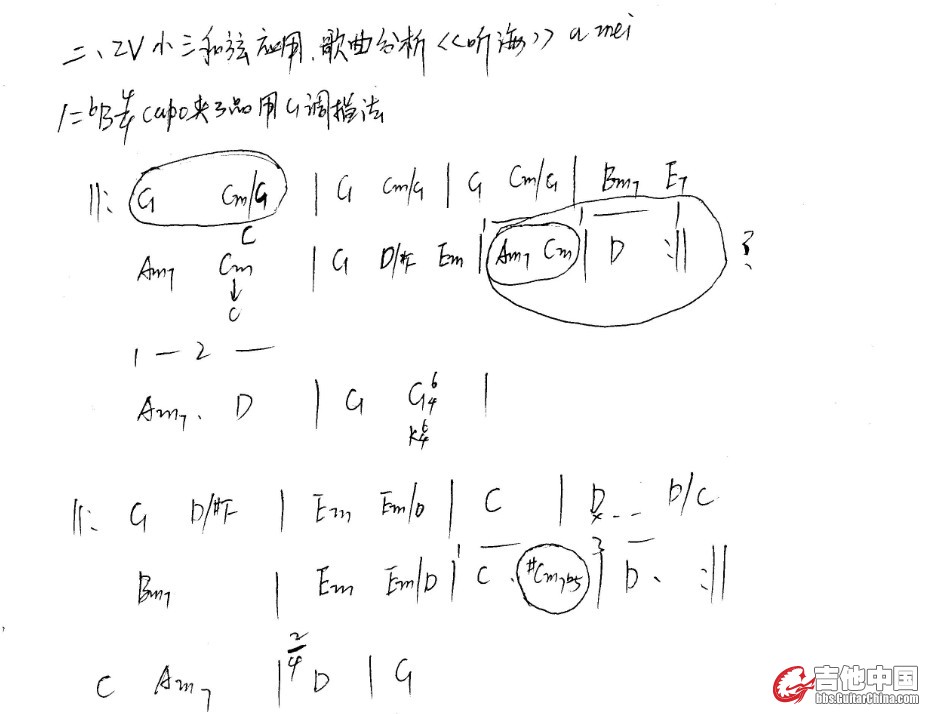 二、IV小三和弦应用.歌曲分析《听海》a mei
1=bB 4/4 capo夹3品用G调指法
||: G Cm/G | G Cm/G | G Cm/G | Bm7 E7
C
Am7 Cm | G D/#F Em | Am7 Cm | D :|| ?
C
1 — 2 —
Am7. D | G G64 |
K64
||: G D/#F | Em Em/D | C | D D/C
Bm7 | Em Em/D | C . #Cm7b5 | D . :||
C Am7 | 2/4 D | G
吉他中国
bbs.GuitarChina.com